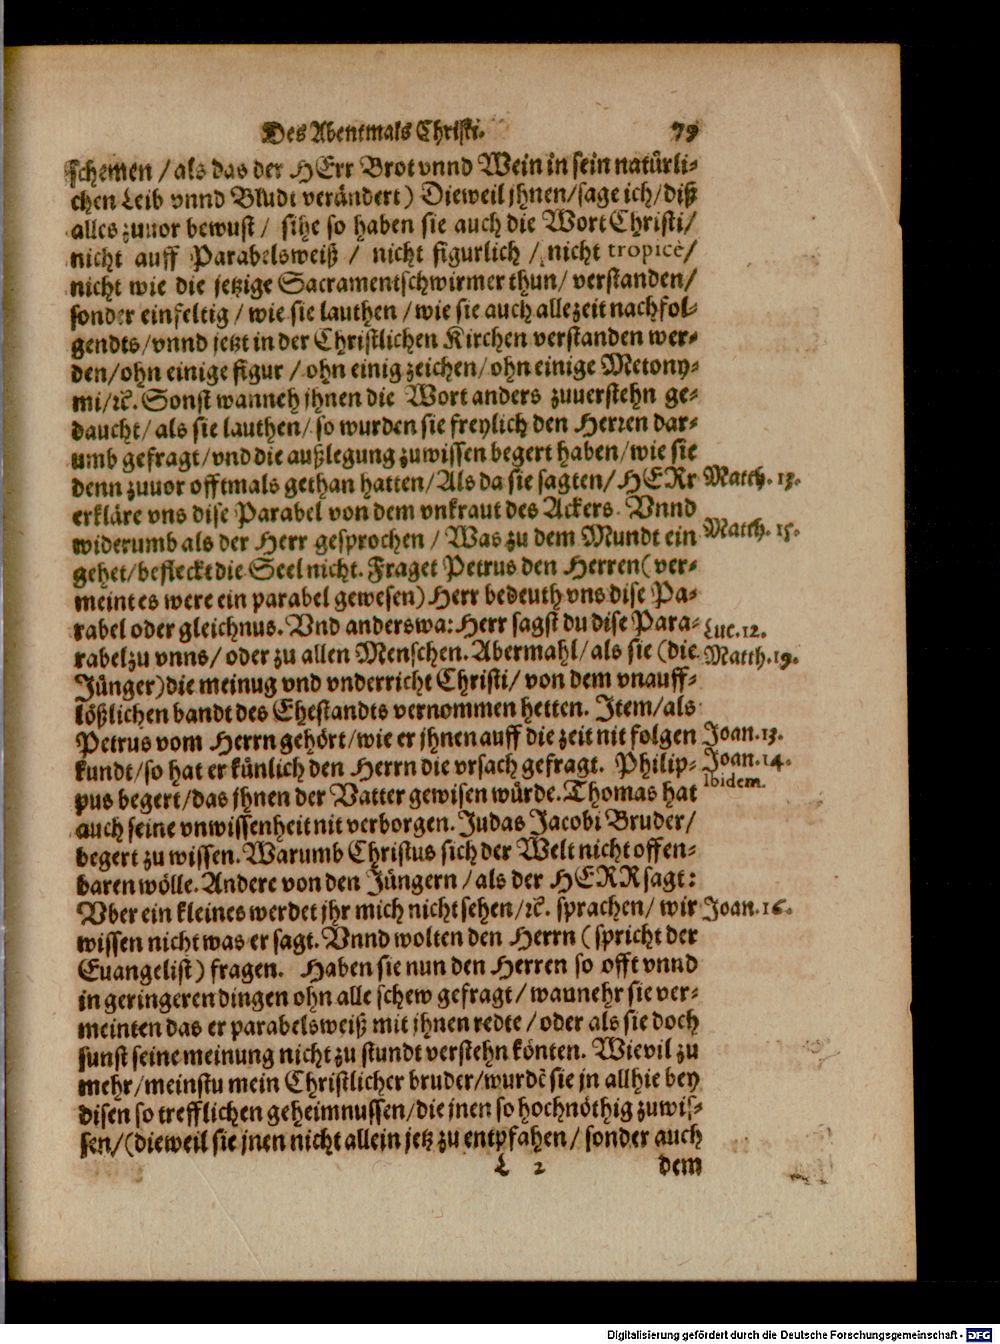 Des Abentmals Christi. 79
schemen / als das der HErr Brot vnnd Wein in sein natürli-
chen Leib vnnd Bludt verändert) Dieweil jhnen/sage ich/diß
alles zuuor bewust / sihe so haben sie auch die Wort Christi/
nicht auff Parabelsweiß / nicht figurlich / nicht tropicè/
nicht wie die jetzige Sacramentschwirmer thun/ verstanden/
sonder einfeltig / wie sie lauthen / wie sie auch allezeit nachfol-
gendts/vnnd jetzt in der Christlichen Kirchen verstanden wer-
den/ohn einige figur / ohn einig zeichen/ohn einige Metony-
mi/ꝛc. Sonst wanneh jhnen die Wort anders zuuerstehn ge-
daucht/ als sie lauthen/ so wurden sie freylich den Herren dar-
umb gefragt/vnd die außlegung zuwissen begert haben/wie sie
denn zuuor offtmals gethan hatten/Als da sie sagten/ HERr Matth. 13.
erkläre vns dise Parabel von dem vnkraut des Ackers. Vnnd
widerumb als der Herr gesprochen / Was zu dem Mundt ein Matth. 15.
gehet/befleckt die Seel nicht. Fraget Petrus den Herren(ver-
meint es were ein parabel gewesen) Herr bedeuth vns dise Pa-
rabel oder gleichnus. Vnd anderswa: Herr sagst du dise Para- Luc. 12.
rabel zu vnns/ oder zu allen Menschen. Abermahl/als sie (die Matth. 19.
Jünger)die meinug vnd vnderricht Christi/ von dem vnauff-
lößlichen bandt des Ehestandts vernommen hetten. Item/als
Petrus vom Herrn gehört/wie er jhnen auff die zeit nit folgen Joan. 13.
kundt/so hat er künlich den Herrn die vrsach gefragt. Philip- Joan. 14.
pus begert/das jhnen der Vatter gewisen würde. Thomas hat Ibidem.
auch seine vnwissenheit nit verborgen. Judas Jacobi Bruder/
begert zu wissen. Warumb Christus sich der Welt nicht offen-
baren wölle. Andere von den Jüngern / als der HERR sagt:
Vber ein kleines werdet jhr mich nicht sehen/ꝛc. sprachen/ wir Joan. 16.
wissen nicht was er sagt. Vnnd wolten den Herrn ( spricht der
Euangelist) fragen. Haben sie nun den Herren so offt vnnd
jn geringeren dingen ohn alle schew gefragt/ wannehr sie ver-
meinten das er parabelsweiß mit jhnen redte / oder als sie doch
sunst seine meinung nicht zu stundt verstehn könten. Wievil zu
mehr/meinstu mein Christlicher bruder/wurdē sie jn allhie bey
disen so trefflichen geheimnussen/die jnen so hochnöthig zuwis-
sen/(dieweil sie jnen nicht allein jetz zu entpfahen/ sonder auch
L 2 dem
Digitalisierung gefördert durch die Deutsche Forschungsgemeinschaft - DFG